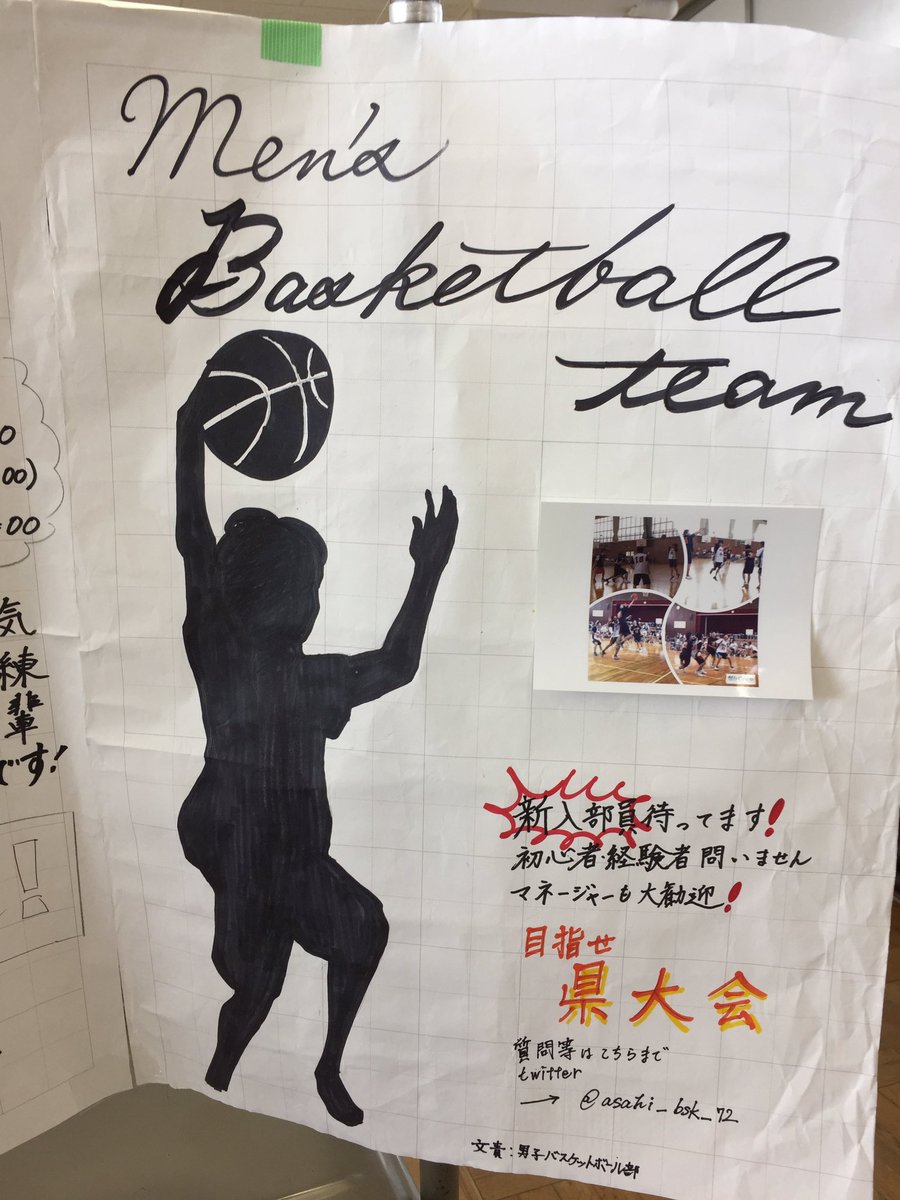 Men's
Basketball
team
新入部員待ってます!
初心者・経験者問いません
マネージャーも大歓迎!
目指せ
県大会
質問等はこちらまで
twitter
→ @asahi_bsk_72
文責:男子バスケットボール部
00)
:00
気
練
輩
です!
!